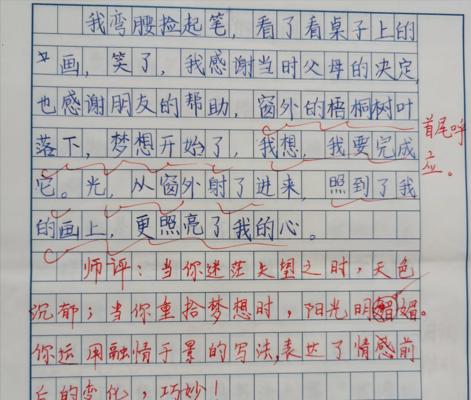 我弯腰捡起笔，看了看桌子上的
画，笑了，我感谢当时父母的决定，
也感谢朋友的帮助，窗外的梧桐树叶
落下，梦想开始了，我想，我要完成
首尾呼应。
它。光，从窗外射了进来，照到了我
的画上，更照亮了我的心。
师评：当你迷茫失望之时，天色
沉郁；当你重拾梦想时，阳光明媚。
你运用融情于景的写法，表达了情感前
后的变化，巧妙！